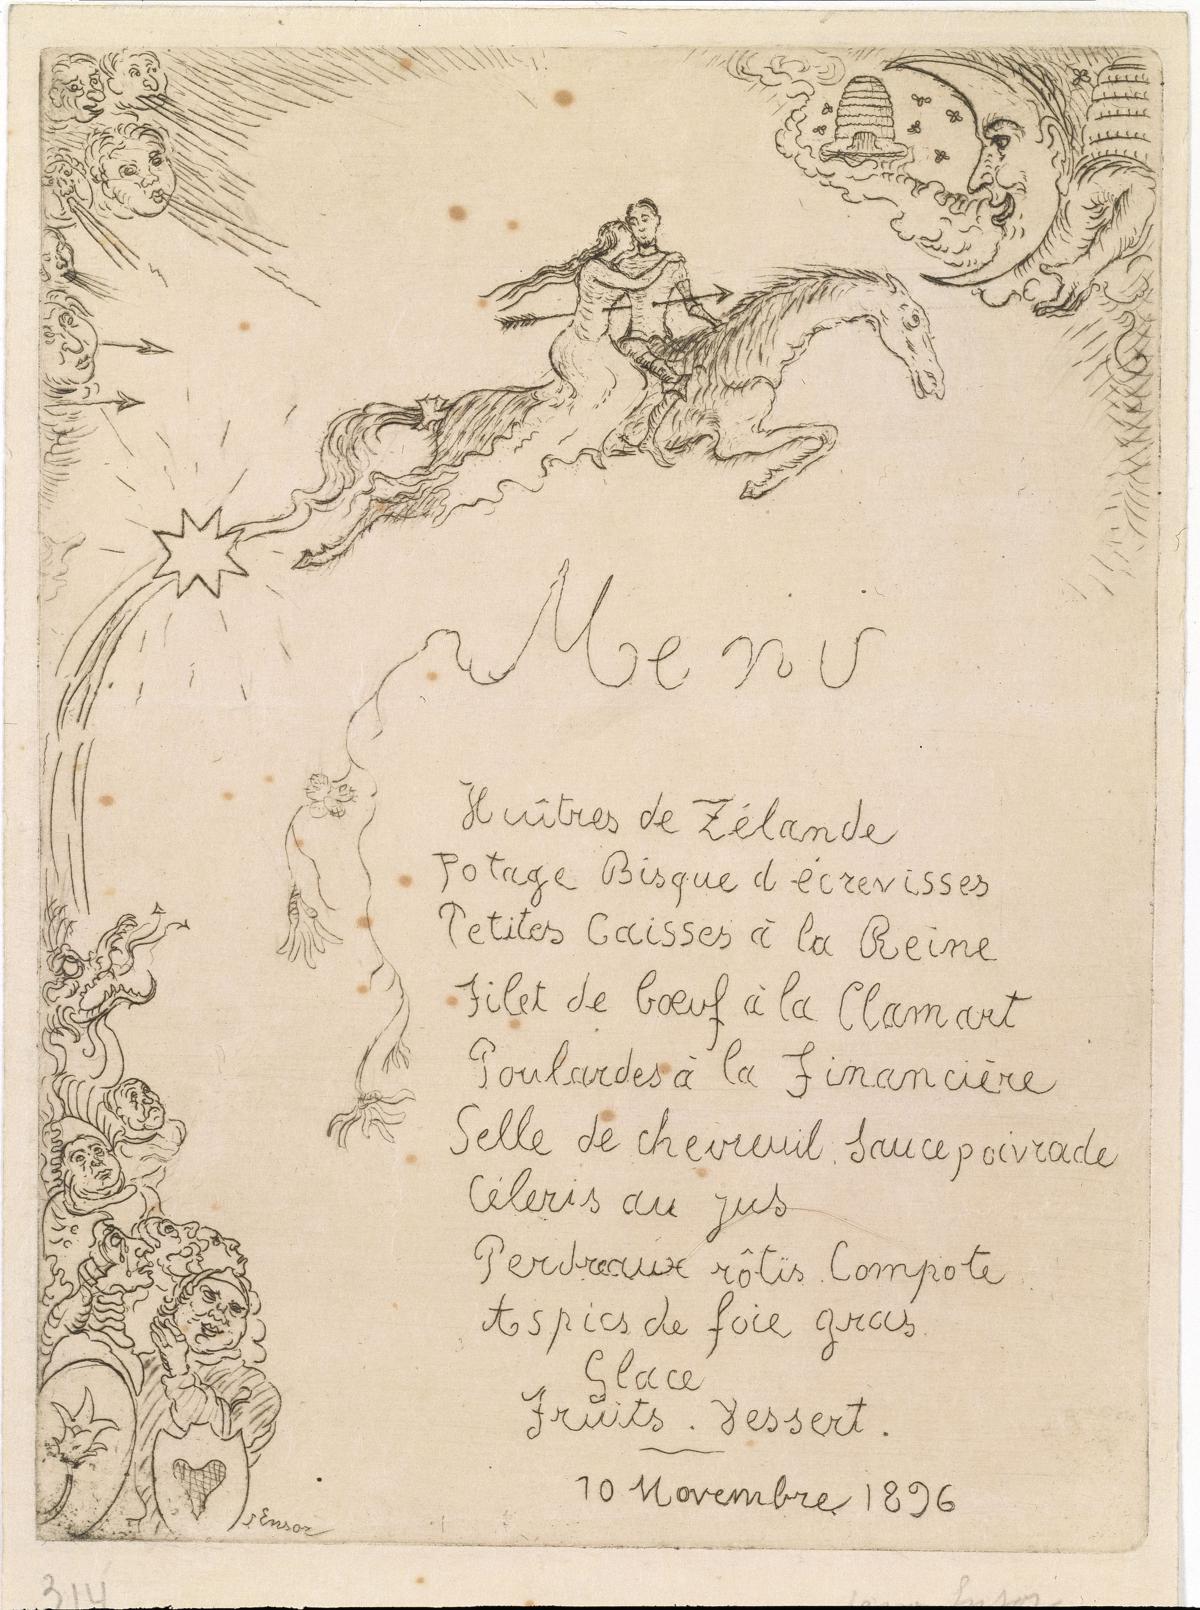 Menu
Huîtres de Zélande
Potage Bisque d'écrevisses
Petites Caisses à la Reine
Filet de bœuf à la Clamart
Poulardes à la Financière
Selle de chevreuil. Sauce poivrade
Céleris au jus
Perdreaux rôtis. Compote
Aspics de foie gras.
Glace
Fruits. Dessert.
10 Novembre 1896
J Ensor
314
Ensor